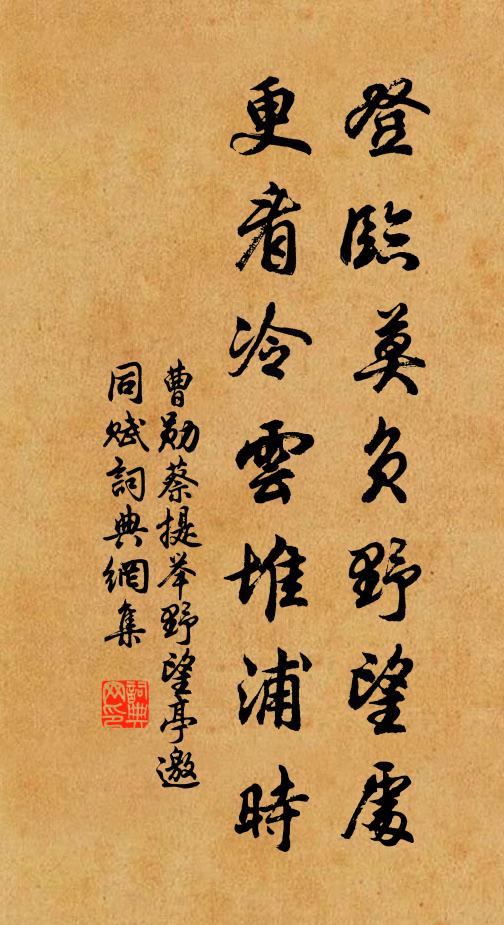 登臨莫負野望處
更看冷雲堆浦時
曹勛蔡提举野望亭邀
同赋詞典網集
詞典
网印